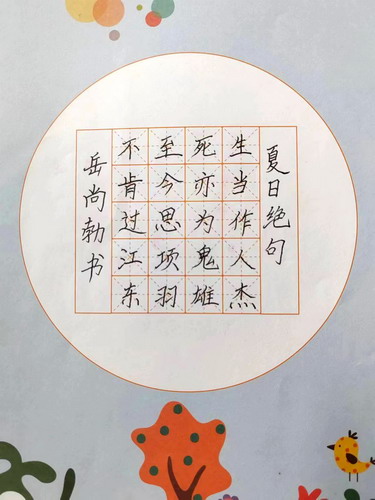 夏日绝句
生当作人杰
死亦为鬼雄
至今思项羽
不肯过江东
岳尚勃书